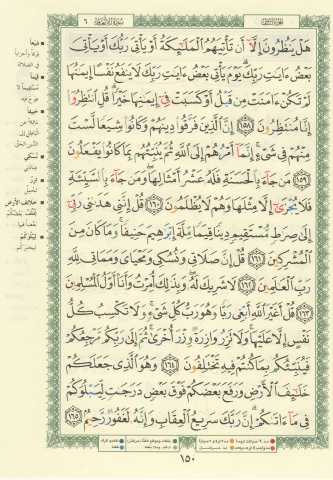 الجزء الثامن
سورة الأنعام ٦
هَلْ يَنظُرُونَ إِلَّا أَن تَأْتِيَهُمُ الْمَلَٰٓئِكَةُ أَوْ يَأْتِيَ رَبُّكَ أَوْ يَأْتِيَ
بَعْضُ ءَايَٰتِ رَبِّكَ يَوْمَ يَأْتِي بَعْضُ ءَايَٰتِ رَبِّكَ لَا يَنفَعُ نَفْسًا إِيمَٰنُهَا
لَمْ تَكُنْ ءَامَنَتْ مِن قَبْلُ أَوْ كَسَبَتْ فِىٓ إِيمَٰنِهَا خَيْرًا قُلِ انتَظِرُوٓا
إِنَّا مُنتَظِرُونَ ١٥٨ إِنَّ الَّذِينَ فَرَّقُوا دِينَهُمْ وَكَانُوا شِيَعًا لَّسْتَ
مِنْهُمْ فِى شَىْءٍ إِنَّمَآ أَمْرُهُمْ إِلَى اللَّهِ ثُمَّ يُنَبِّئُهُم بِمَا كَانُوا يَفْعَلُونَ
١٥٩ مَن جَآءَ بِالْحَسَنَةِ فَلَهُ عَشْرُ أَمْثَالِهَا وَمَن جَآءَ بِالسَّيِّئَةِ
فَلَا يُجْزَىٰٓ إِلَّا مِثْلَهَا وَهُمْ لَا يُظْلَمُونَ ١٦٠ قُلْ إِنَّنِى هَدَىٰنِى رَبِّىٓ
إِلَىٰ صِرَٰطٍ مُّسْتَقِيمٍ دِينًا قِيَمًا مِّلَّةَ إِبْرَٰهِيمَ حَنِيفًا وَمَا كَانَ مِنَ
الْمُشْرِكِينَ ١٦١ قُلْ إِنَّ صَلَاتِى وَنُسُكِى وَمَحْيَاىَ وَمَمَاتِى لِلَّهِ
رَبِّ الْعَٰلَمِينَ ١٦٢ لَا شَرِيكَ لَهُ وَبِذَٰلِكَ أُمِرْتُ وَأَنَا أَوَّلُ الْمُسْلِمِينَ
١٦٣ قُلْ أَغَيْرَ اللَّهِ أَبْغِى رَبًّا وَهُوَ رَبُّ كُلِّ شَىْءٍ وَلَا تَكْسِبُ كُلُّ
نَفْسٍ إِلَّا عَلَيْهَا وَلَا تَزِرُ وَازِرَةٌ وِزْرَ أُخْرَىٰ ثُمَّ إِلَىٰ رَبِّكُم مَّرْجِعُكُمْ
فَيُنَبِّئُكُم بِمَا كُنتُمْ فِيهِ تَخْتَلِفُونَ ١٦٤ وَهُوَ الَّذِى جَعَلَكُمْ
خَلَٰٓئِفَ الْأَرْضِ وَرَفَعَ بَعْضَكُمْ فَوْقَ بَعْضٍ دَرَجَٰتٍ لِّيَبْلُوَكُمْ
فِى مَآ ءَاتَىٰكُمْ إِنَّ رَبَّكَ سَرِيعُ الْعِقَابِ وَإِنَّهُ لَغَفُورٌ رَّحِيمٌ ١٦٥
١٥٠
شيعاً
قيماً
حنيفاً
نسكي
خلائف الأرض
ليبلوكم